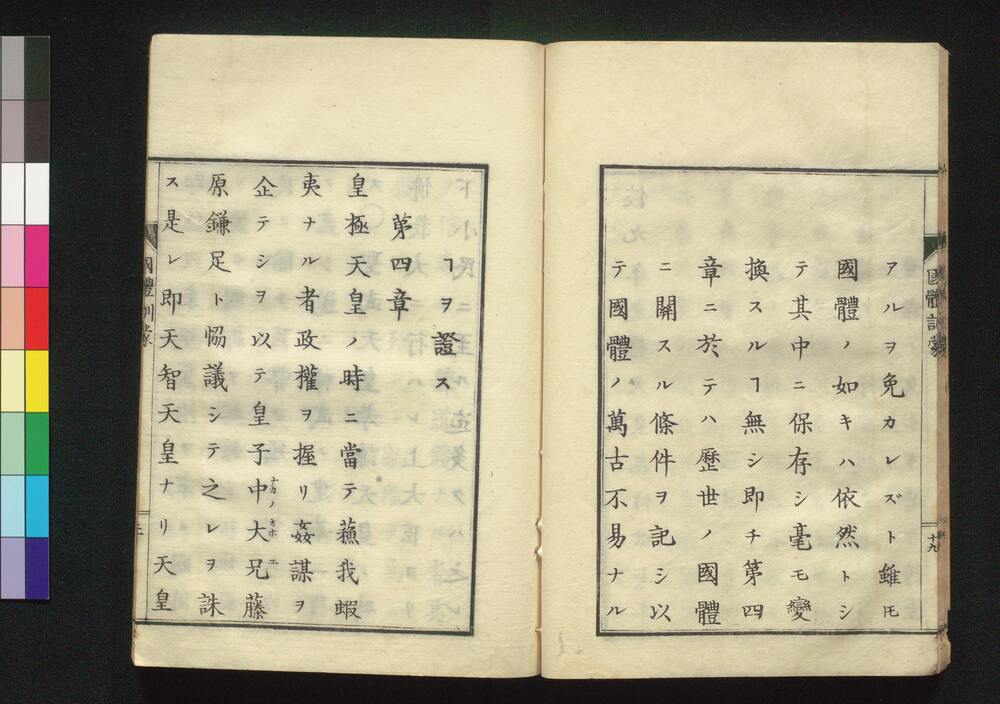 國體訓蒙
十九
アルヲ免カレズト雖𪜈
國體ノ如キハ依然トシ
テ其中ニ保存シ毫モ變
換スルヿ無シ即チ第四
章ニ於テハ歷世ノ國體
ニ關スル條件ヲ記シ以
テ國體ノ萬古不易ナル
ヿヲ證ス
第四章
皇極天皇ノ時ニ當テ蘓我蝦
夷ナル者政權ヲ握リ姦謀ヲ
企テシヲ以テ皇子中大兄藤
原鎌足ト恊議シテ之レヲ誅
ス是レ即天智天皇ナリ天皇
國體訓蒙